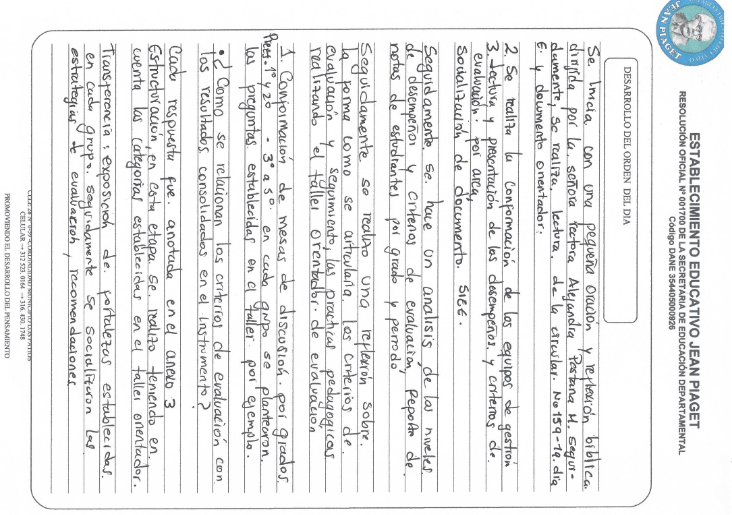 ESTABLECIMIENTO EDUCATIVO JEAN PIAGET
RESOLUCIÓN OFICIAL Nº 001700 DE LA SECRETARIA DE EDUCACIÓN DEPARTAMENTAL
Código DANE 354405000926
JEAN PIAGET
DESARROLLO DEL ORDEN DEL DIA
Se Inicia con una pequeña Oración y reflexión bíblica.
dirigida por la señora rectora Alejandra Pestana M. Segui-
damente, se realiza lectura de la circular. No 159-19. dia
E. y documento orientador.
2. Se realiza la conformación de los equipos de gestión
3. Lectura y presentación de los desempeños y criterios de
evaluación. por area,
Socialización de documento. SIEE.
Seguidamente se hace un analisis de los niveles
de desempeños y criterios de evaluación, Reporte de
notas de estudiantes por grado y periodo
Seguidamente se realizo una reflexión sobre.
la forma como se articularía. los criterios de.
evaluación y seguimiento, las practicas pedagogicas
realizando el taller orientador. de evaluación
1. Conformación de mesas de discusión. por grados.
Pree. 1º y 2º - 3º a 5º. en cada grupo se plantearon.
las preguntas establecidas en el taller por ejemplo.
• ¿Como se relacionan los criterios de evaluación con
los resultados consolidados en el instrumento?
Cada respuesta fue. anotada en el anexo 3
Estructuración, en esta etapa se. realizo teniendo en.
cuenta las categorias establecidas en el taller orientador.
Transferencia: exposición de fortalezas establecidas.
en cada grupo. seguidamente se socializaron las
estrategias de evaluación, recomendaciones
CELULAR
PROMOVIENDO EL DESARROLLO DEL PENSAMIENTO